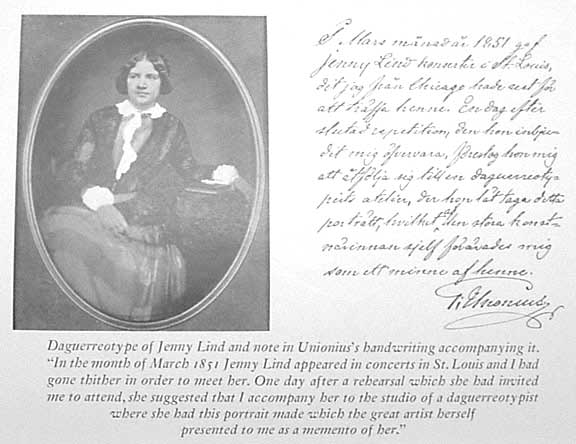 I Mars månad år 1851 gaf
Jenny Lind konserter i St. Louis,
dit jag från Chicago hade rest för
att träffa henne. En dag efter
slutad repetition, den hon inbju-
dit mig öfvervara, föreslog hon mig
att åtfölja sig till en daguerreoty-
pists atelier, der hon lät taga detta
porträtt, hvilket af den stora konst-
närinnan sjelf förärades mig
som ett minne af henne.
Unonius
Daguerreotype of Jenny Lind and note in Unionius's handwriting accompanying it.
"In the month of March 1851 Jenny Lind appeared in concerts in St. Louis and I had
gone thither in order to meet her. One day after a rehearsal which she had invited
me to attend, she suggested that I accompany her to the studio of a daguerreotypist
where she had this portrait made which the great artist herself
presented to me as a memento of her."